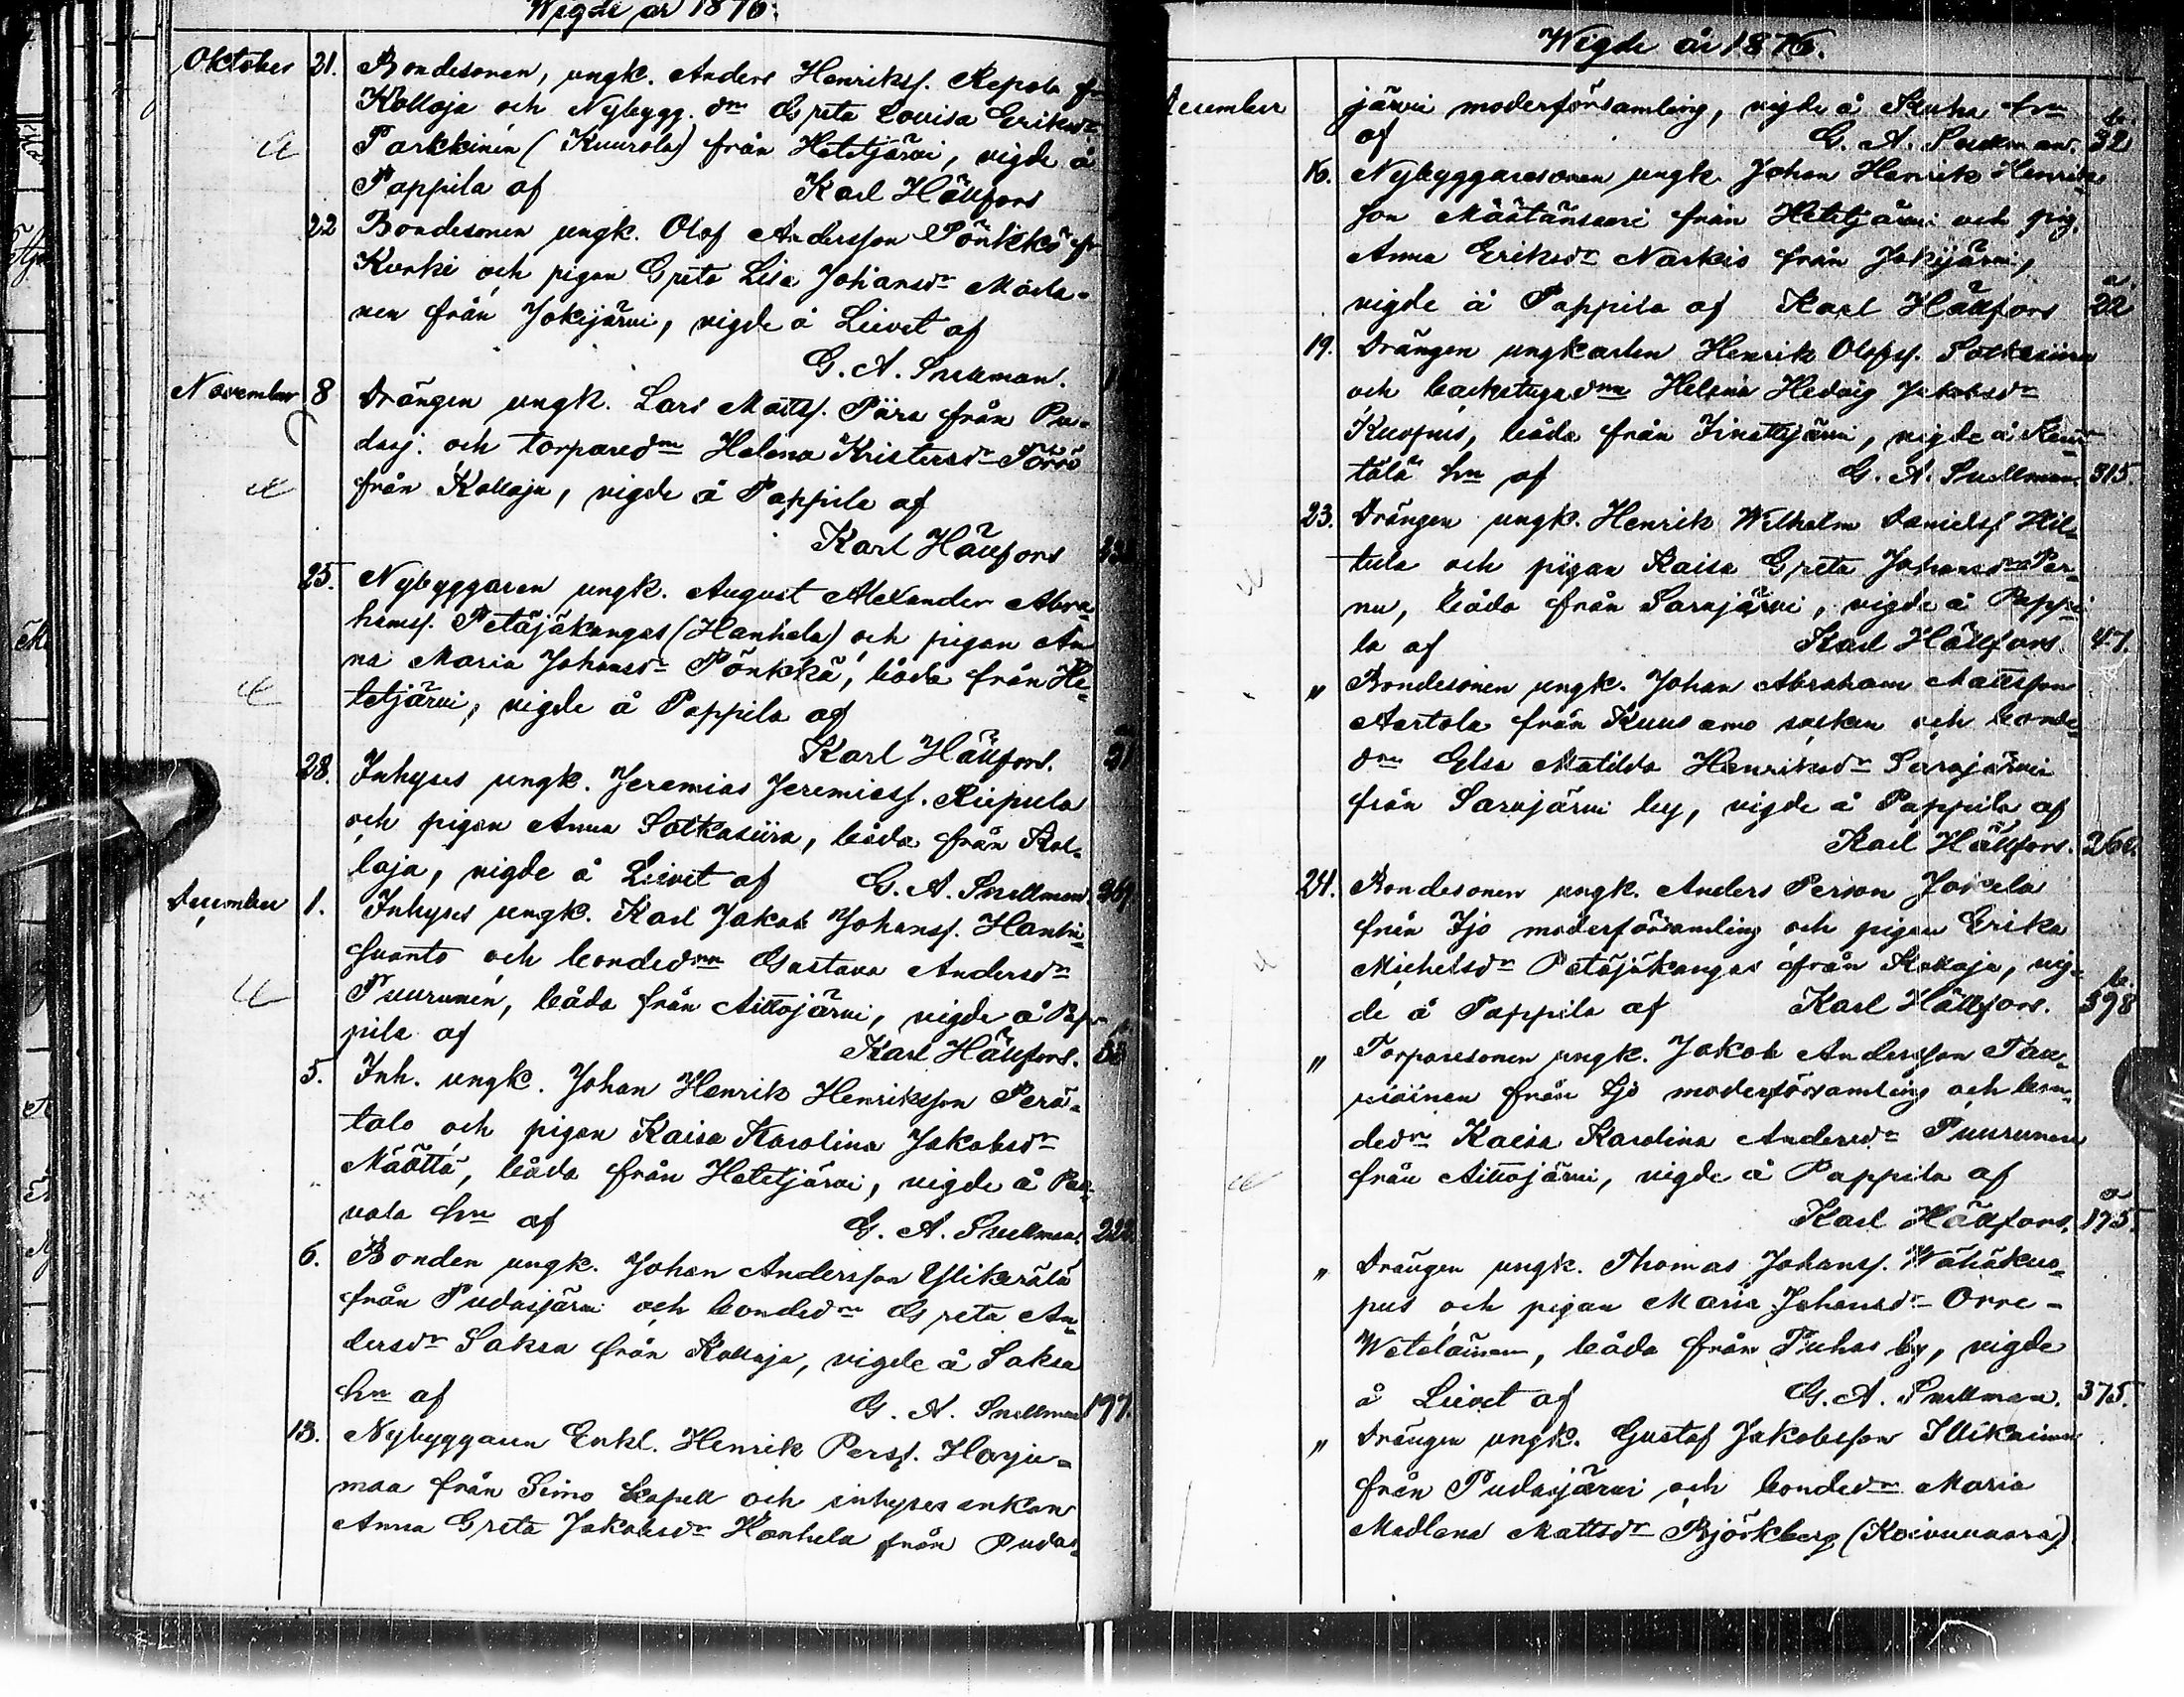 Wigde år 1876.
Oktober 21. Bondesonen, ungk. Anders Henrikss. Repola fr.
Kollaja och Nybygg. dn Greta Lovisa Eriksdr
Parkkinen (Kuurola) från Hetetjärvi, vigde å
Pappila af Karl Hällfors
22 Bondesonen ungk. Olof Andersson Pönkkö fr
Kurki och pigan Greta Lisa Johansdr Määttä-
nen från Jokijärvi, vigde å Liivet af
G. A. Snellman.
November 8 Drängen ungk. Lars Matts. Pära från Pu-
dasj. och torparedn Helena Kristersdr Törrö
från Kollaja, vigde å Pappila af
Karl Hällfors
25. Nybyggaren ungk. August Alexander Abra-
hamss. Petäjäkangas (Hanhela) och pigan An-
na Maria Johansdr Pönkkä, båda från He-
tetjärvi, vigde å Pappila af
Karl Hällfors. 21
28. Inhyses ungk. Jeremias Jeremiass. Riepula
och pigan Anna Sotkasiira, båda från Kol-
laja, vigde å Liivet af G. A. Snellman. 269
December 1. Inhyses ungk. Karl Jakob Johanss. Hanhi-
suanto och bondedn Gustava Andersdr
Puurunen, båda från Aittojärvi, vigde å Pap-
pila af Karl Hällfors.
5. Inh. ungk. Johan Henrik Henriksson Perä-
talo och pigan Kaisa Karolina Jakobsdr
Määttä, båda från Hetetjärvi, vigde å
vala hn af G. A. Snellman. 222
6. Bonden ungk. Johan Andersson Ylikerälä
från Pudasjärvi och bondedn Greta An-
dersdr Saksa från Kollaja, vigde å Saksa
hn af G. A. Snellman 197.
13. Nybyggaren Enkl. Henrik Perss. Harju-
maa från Simo kapell och inhyses enkan
Anna Greta Jakobsdr Hanhela från Pudas-
Wigde år 1876.
December järvi moderförsamling, vigde å Kuha hn b.
af G. A. Snellman. 32
16. Nybyggaresonen ungk. Johan Henrik Henriks-
son Määtänsaari från Hetetjärvi och pig.
Anna Eriksdr Narkio från Jokijärvi, a.
vigde å Pappila af Karl Hällfors 22
19. Drängen ungkarlen Henrik Olofss. Sotkasiira
och backstugedn Helena Hedvig Jakobsdr
Kuopus, båda från Iinattijärvi, vigde å
tälä hn af G. A. Snellman. 315.
23. Drängen ungk. Henrik Wilhelm Daniels. Hil-
tula och pigan Kaisa Greta Johansdr Per-
nu, båda från Sarajärvi, vigde å Pappi-
la af Karl Hällfors. 47.
" Bondesonen ungk. Johan Abraham Mattsson
Aartola från Kuusamo socken och bonde-
dn Elsa Matilda Henriksdr Sarajärvi
från Sarajärvi by, vigde å Pappila af
Karl Hällfors. 262.
24. Bondesonen ungk. Anders Person Jokela
från Ijo moderförsamling och pigan Erika
Michelsdr Petäjäkangas från Kollaja, vig- b.
de å Pappila af Karl Hällfors. 398
" Torparesonen ungk. Jakob Andersson Tau-
riainen från Ijo moderförsamling och bon-
dedn Kaisa Karolina Andersdr Puurunen
från Aittojärvi, vigde å Pappila af a
Karl Hällfors. 175.
" Drängen ungk. Thomas Johanss. Wähäkuo-
pus och pigan Maria Johansdr Orre-
Weteläinen, båda från Puhos by, vigde
å Liivet af G. A. Snellman. 375.
" Drängen ungk. Gustaf Jakobsson Illikainen
från Pudasjärvi och bondedn Maria
Madlena Mattsdr Björkberg (Koivuvaara)